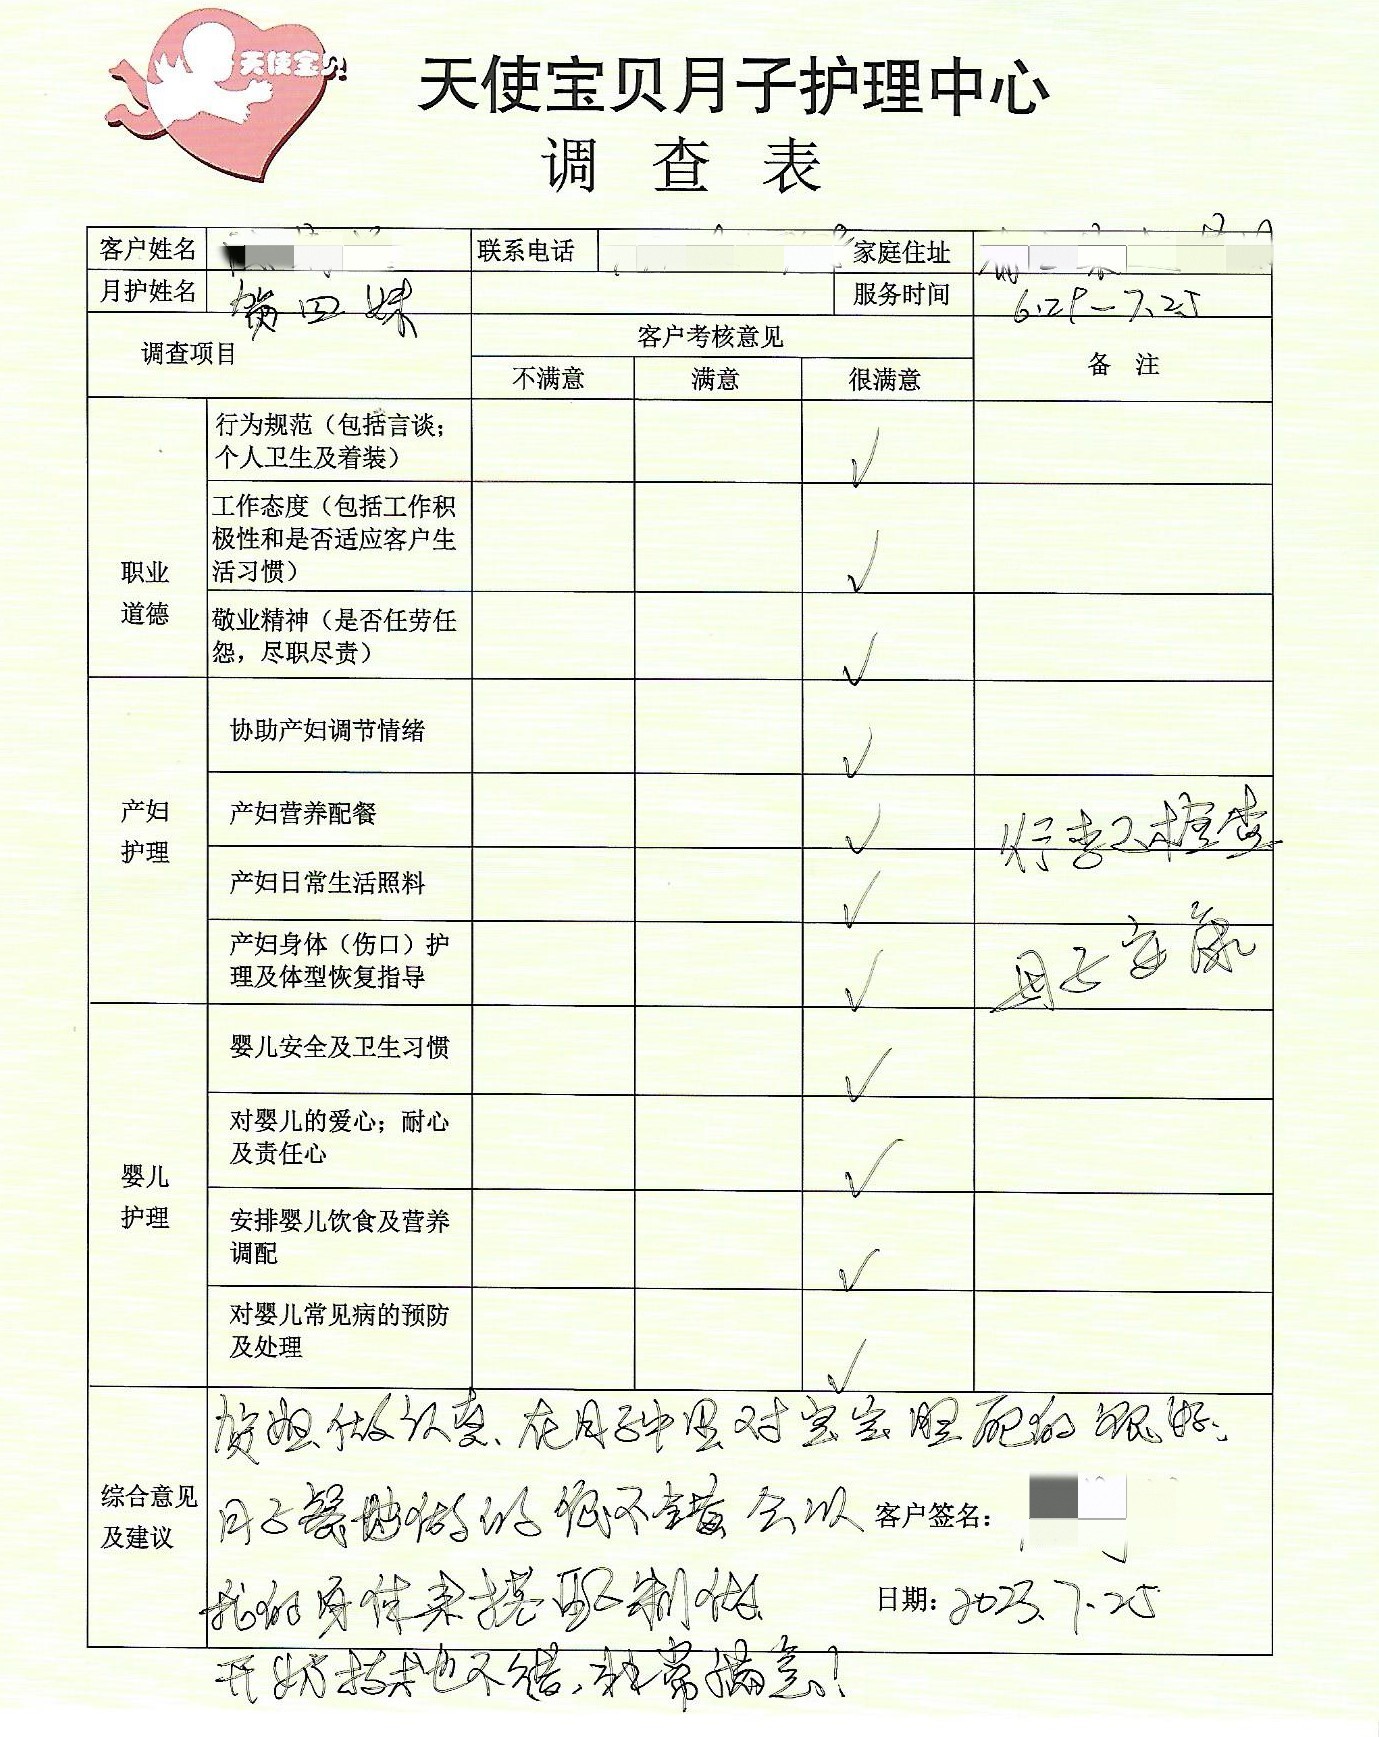 天使宝贝
天使宝贝月子护理中心
调 查 表
客户姓名 联系电话 家庭住址
月护姓名 贺四妹 服务时间 6.29-7.25
调查项目 客户考核意见 备 注
不满意 满意 很满意
职业
道德
行为规范（包括言谈；
个人卫生及着装） ✓
工作态度（包括工作积
极性和是否适应客户生
活习惯） ✓
敬业精神（是否任劳任
怨，尽职尽责） ✓
产妇
护理
协助产妇调节情绪 ✓
产妇营养配餐 ✓
行李已检查
产妇日常生活照料 ✓
产妇身体（伤口）护
理及体型恢复指导 ✓
月子
婴儿
护理
婴儿安全及卫生习惯 ✓
对婴儿的爱心；耐心
及责任心 ✓
安排婴儿饮食及营养
调配 ✓
对婴儿常见病的预防
及处理 ✓
综合意见
及建议
贺姐做认真、在月子中里对宝宝照顾的很好。
月子餐也做的很不错 会以
我的身体来搭配制做
开奶技术也不错，非常满意！
客户签名：
日期：2023.7.25